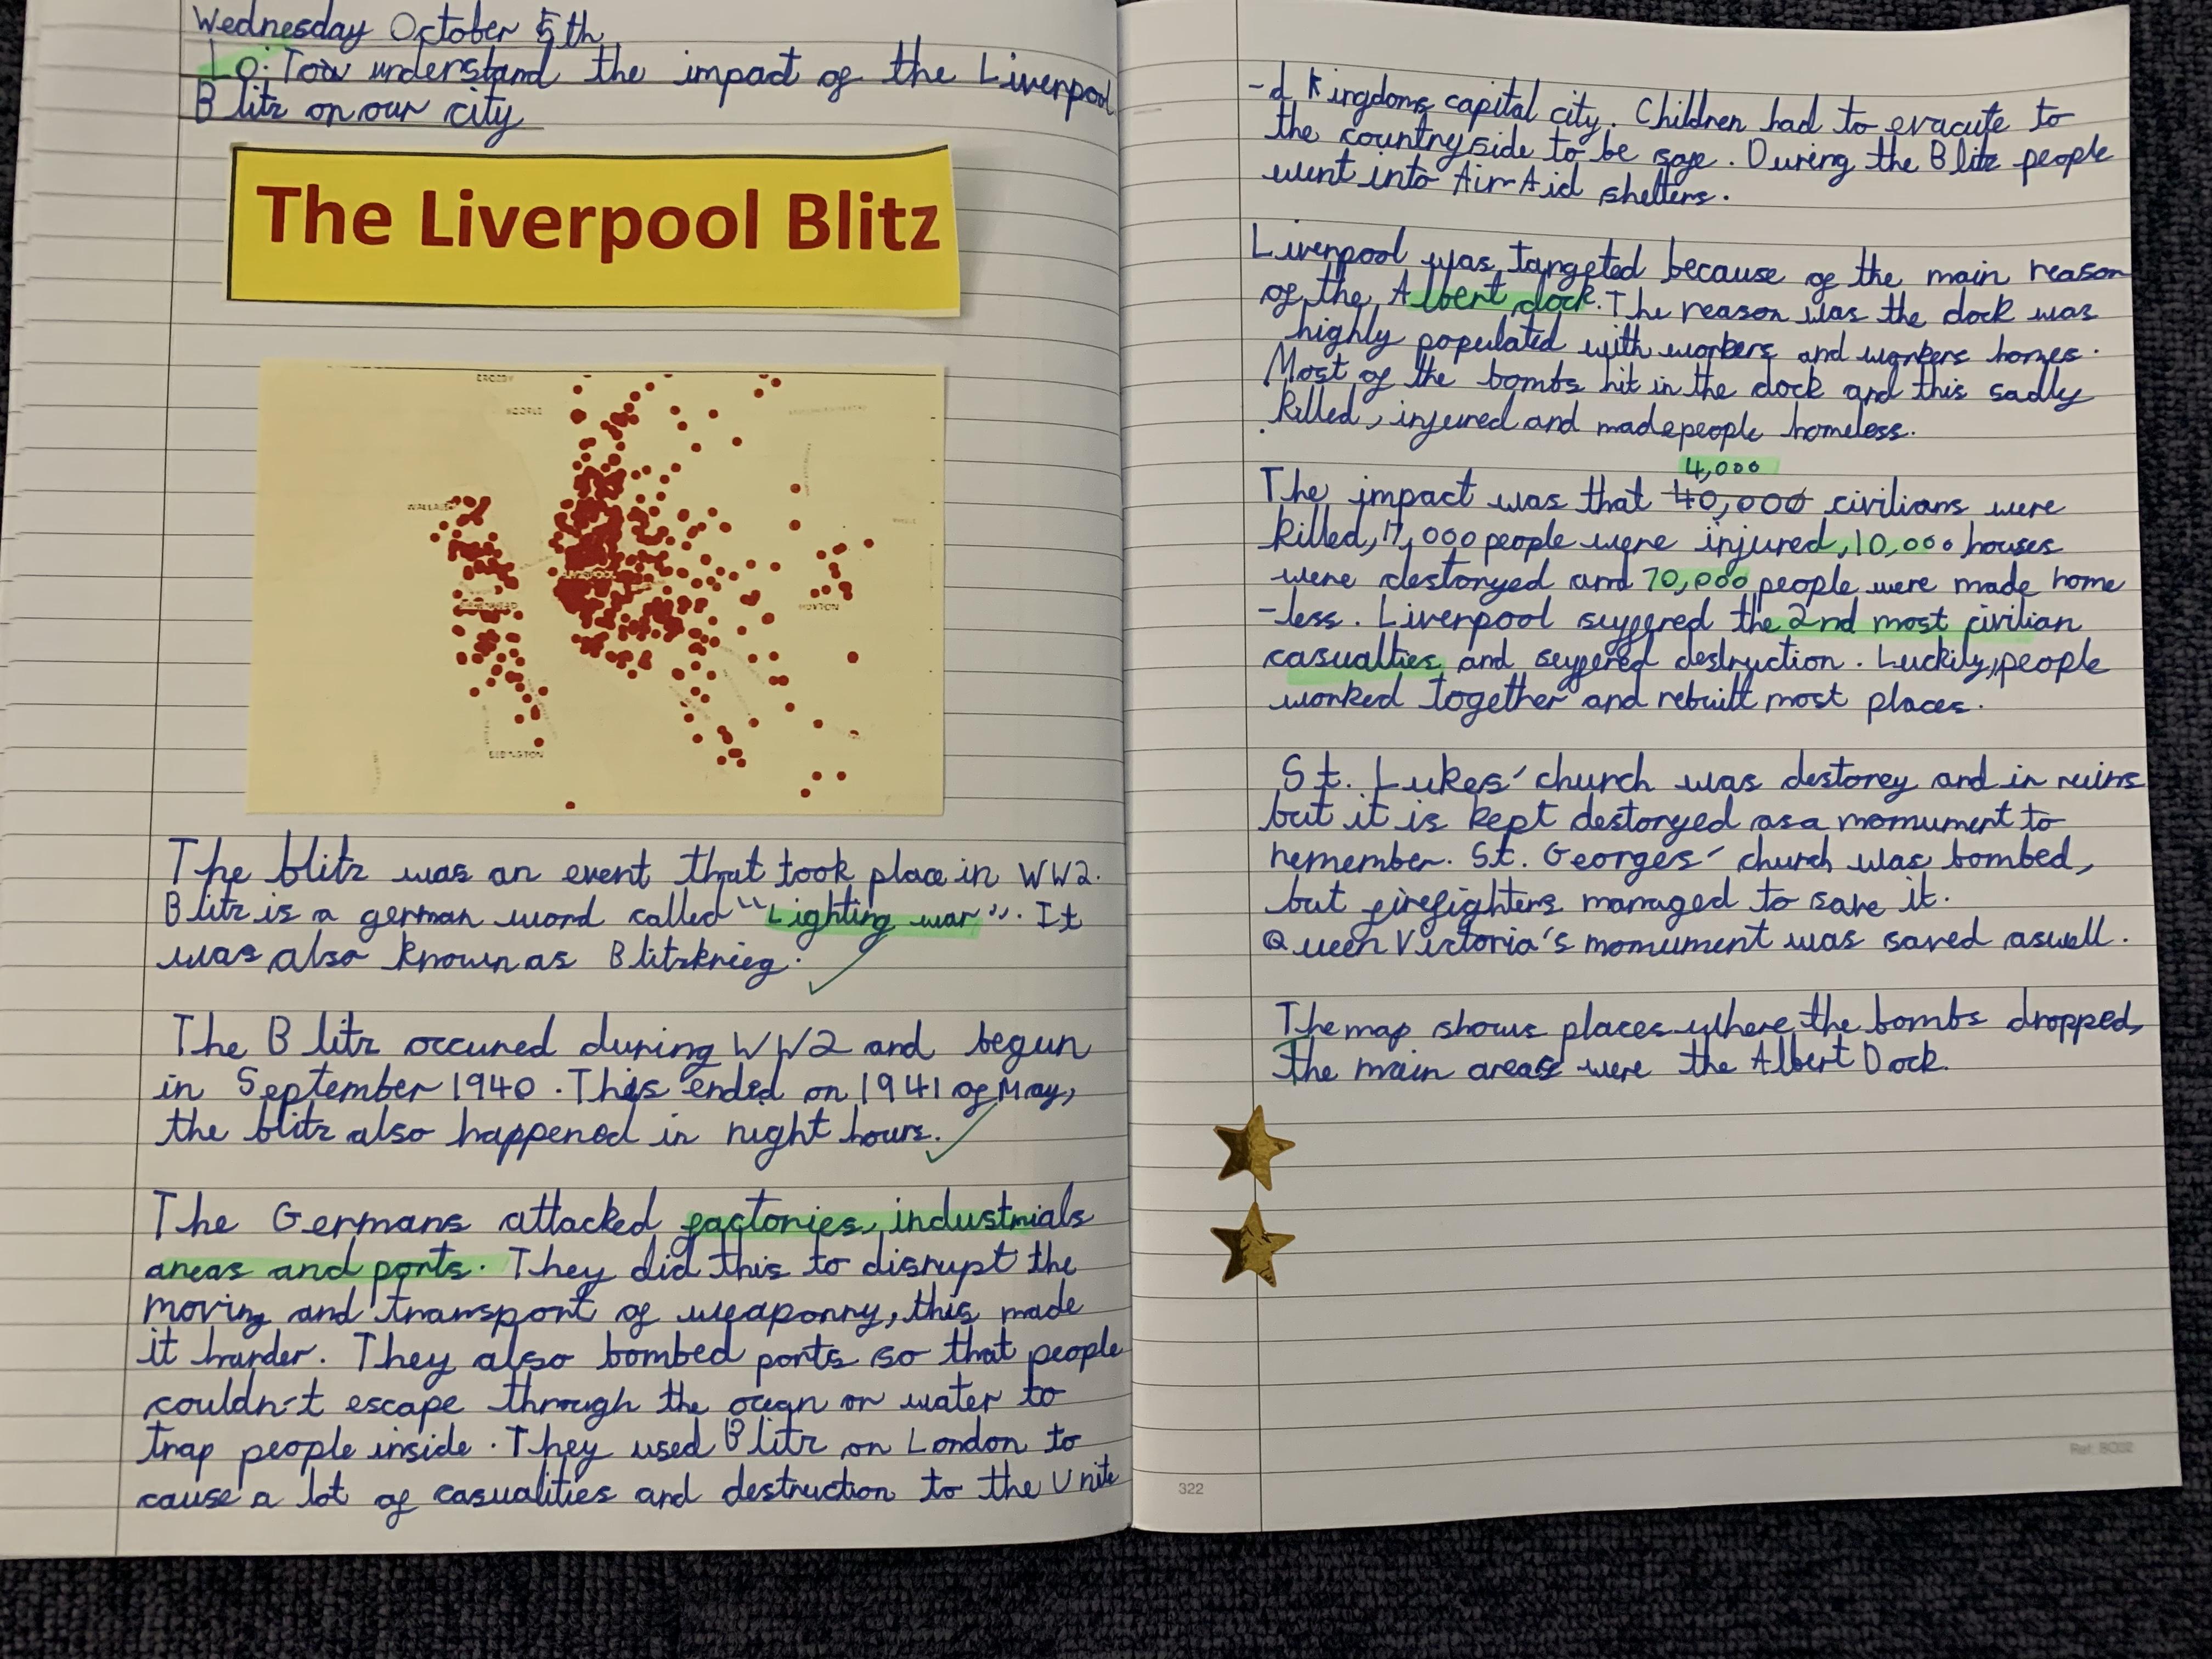 Wednesday October 5th
LO: Too understand the impact of the Liverpool
Blitz on our city
The Liverpool Blitz
The blitz was an event that took place in WW2.
Blitz is a german word called "Lighting war". It
was also known as Blitzkrieg.
The Blitz occured during WW2 and begun
in September 1940. This ended on 1941 of May,
the blitz also happened in night hours.
The Germans attacked factories, industrials
areas and ports. They did this to disrupt the
moving and transport of weaponry, this made
it harder. They also bombed ports so that people
couldn't escape through the ocean or water to
trap people inside. They used Blitz on London to
cause a lot of casualities and destruction to the Unite
-d Kingdoms capital city. Children had to evacute to
the countryside to be safe. During the Blitz people
went into Air Aid shelters.
Liverpool was targeted because of the main reason
of the Albert dock. The reason was the dock was
highly populated with workers and workers homes.
Most of the bombs hit in the dock and this sadly
killed, injured and made people homeless.
4,000
The impact was that 40,000 civilians were
killed, 17,000 people were injured, 10,000 houses
were destonyed and 70,000 people were made home
-less. Liverpool suffered the 2nd most civilian
casualties and suffered destruction. Luckily, people
worked together and rebuilt most places.
St. Lukes' church was destorey and in ruins
but it is kept destoryed as a momument to
remember. St. Georges' church was bombed,
but firefighters managed to save it.
Queen Victoria's momument was saved aswell.
The map shows places where the bombs dropped,
the main areas were the Albert Dock.
322
Ref: BO02